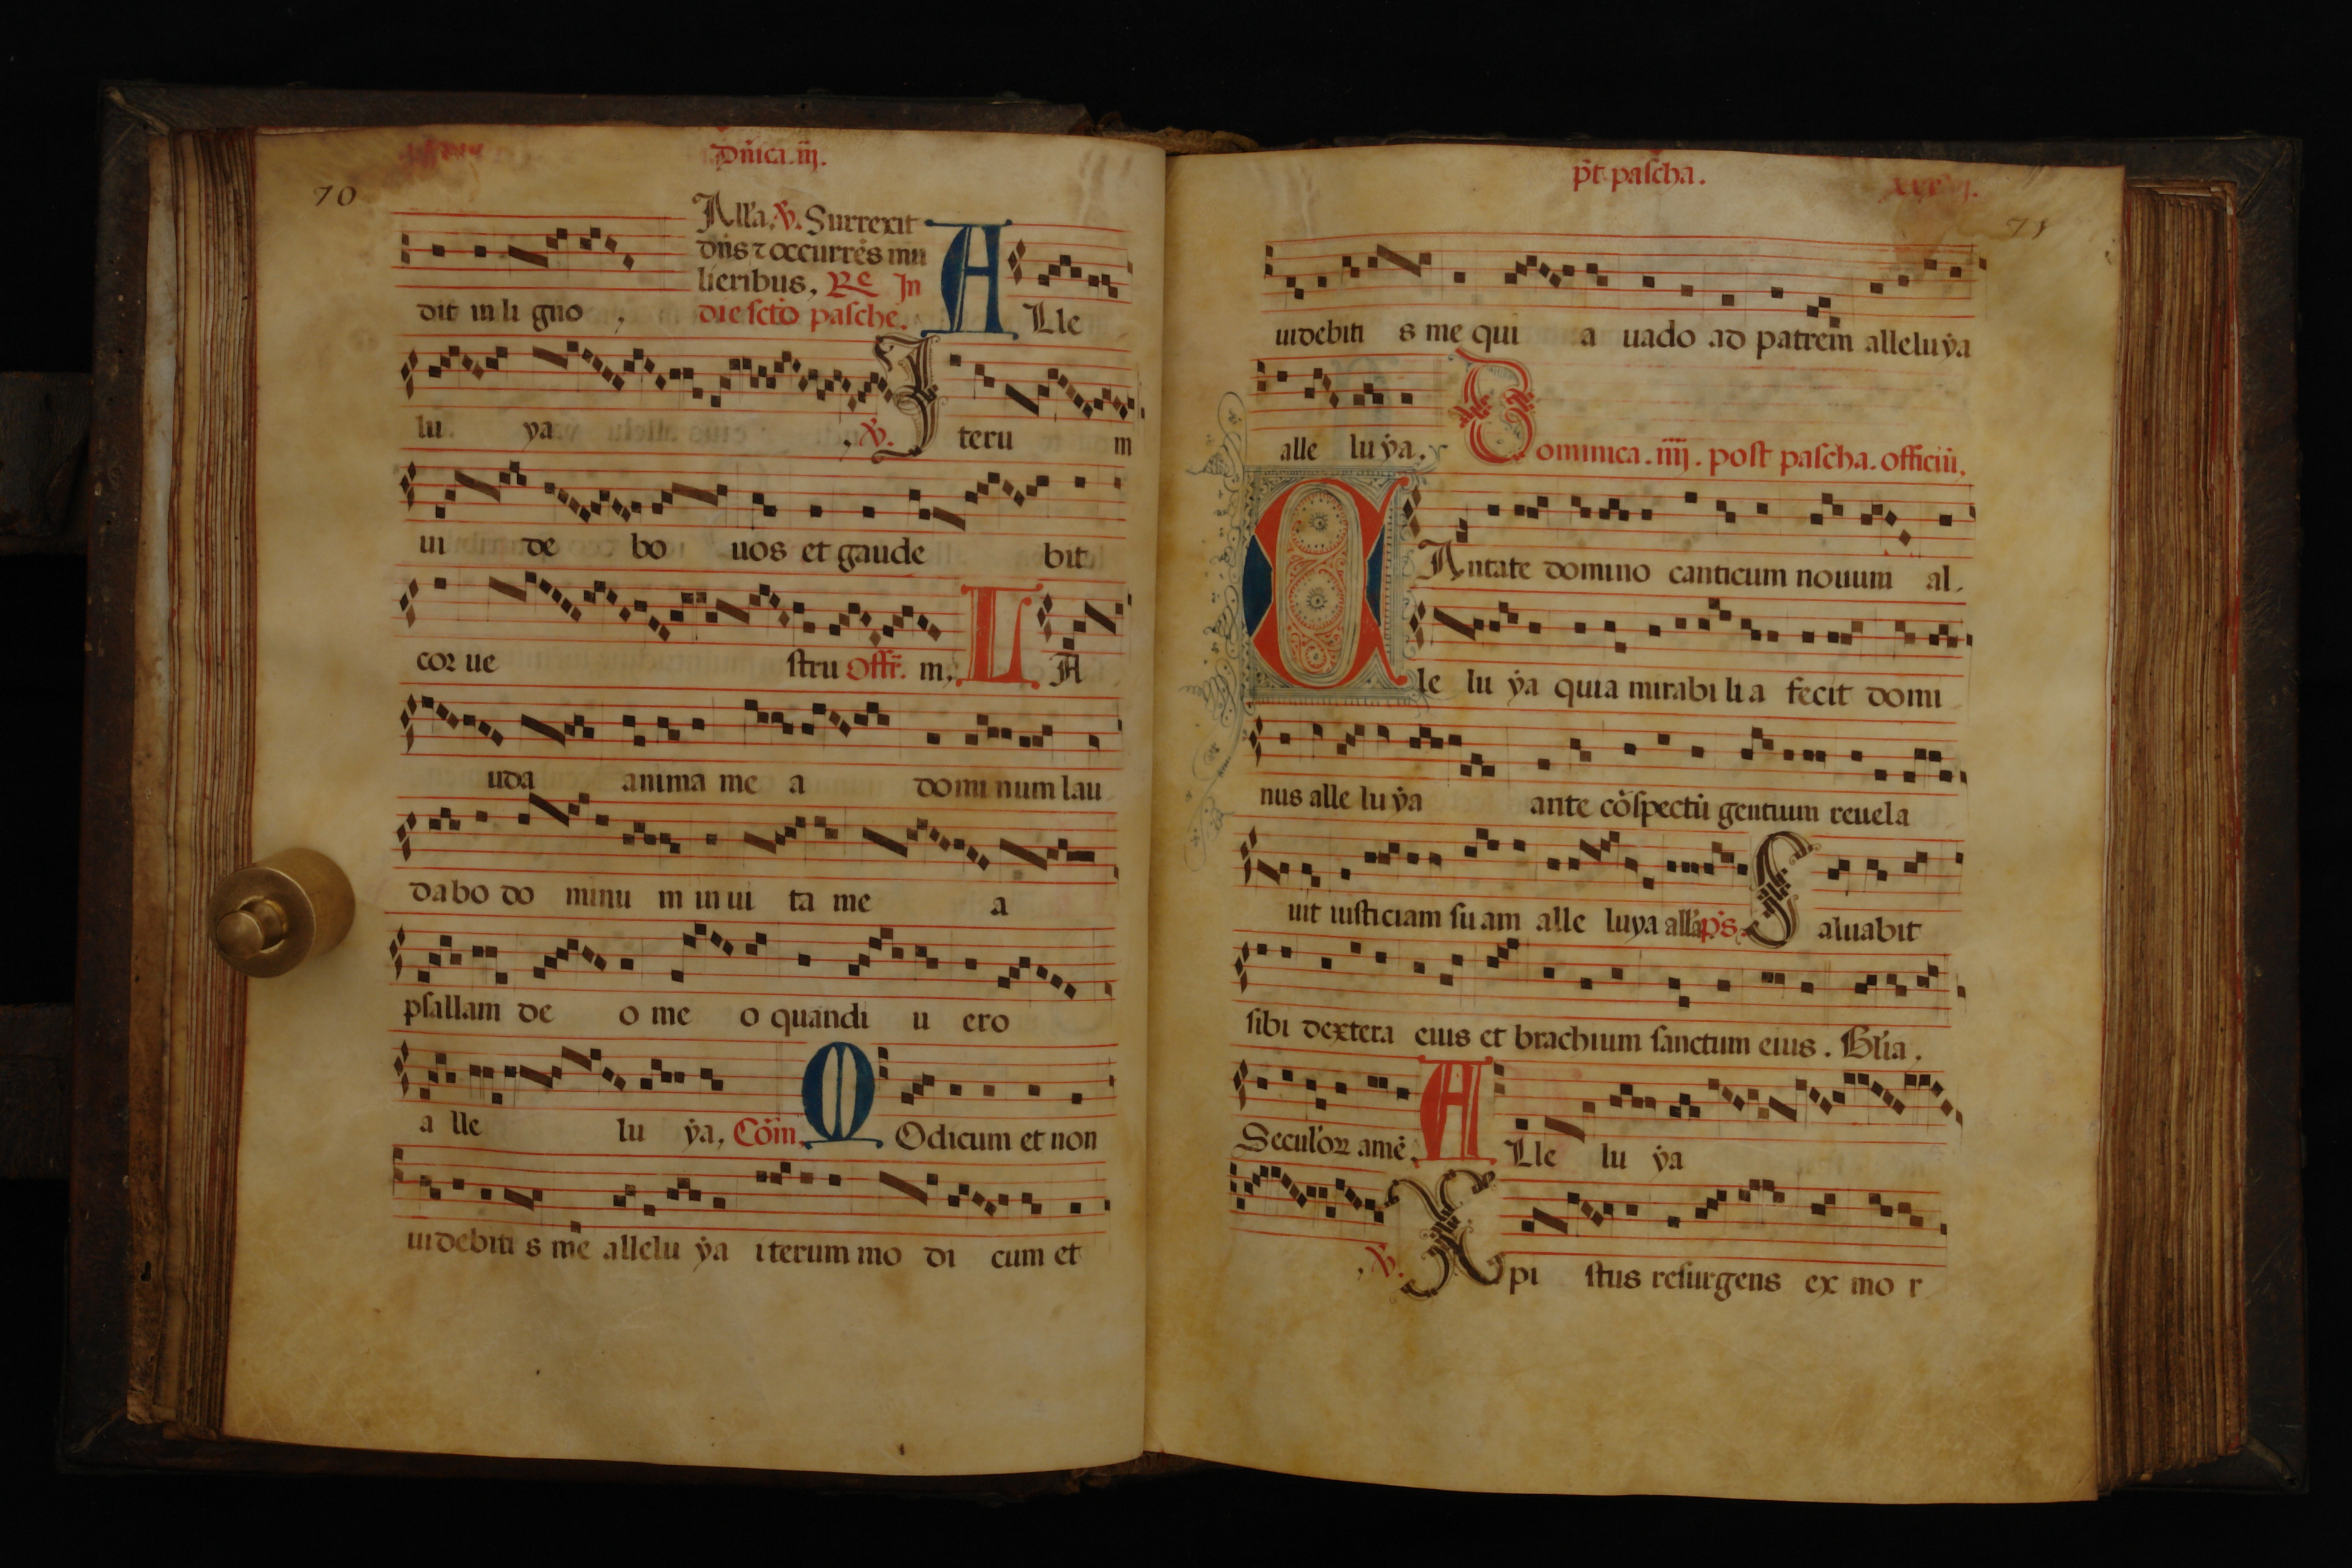 70
Dñica .iij.
Allã. ℣. Surrexit
dñs ⁊ occurrēs mu
lieribus, Re In
dit in li gno , die sctõ pasche. A Lle
lu ya , ℣. I teru m
ui de bo uos et gaude bit
cor ue stru Offr̄. m, L A
uda anima me a domi num lau
dabo do minu m in ui ta me a
psallam de o me o quandi u ero
a lle lu ẏa, Cōm. M Odicum et non
uidebiti s me allelu ẏa iterum mo di cum et
p̄t pascha.
71
uidebiti s me qui a uado ad patrem alleluẏa
alle lu ẏa. Dominica .iiij. post pascha. officiū.
C Antate domino canticum nouum al.
le lu ẏa quia mirabi li a fecit domi
nus alle lu ẏa ante cōspectū gentium reuela
uit iusticiam su am alle luya allã p̄s. S aluabit
sibi dextera eius et brachium sanctum eius. Glĩa.
Seculoꝝ amē. A Lle lu ẏa
, ℣. X pi stus resurgens ex mo r